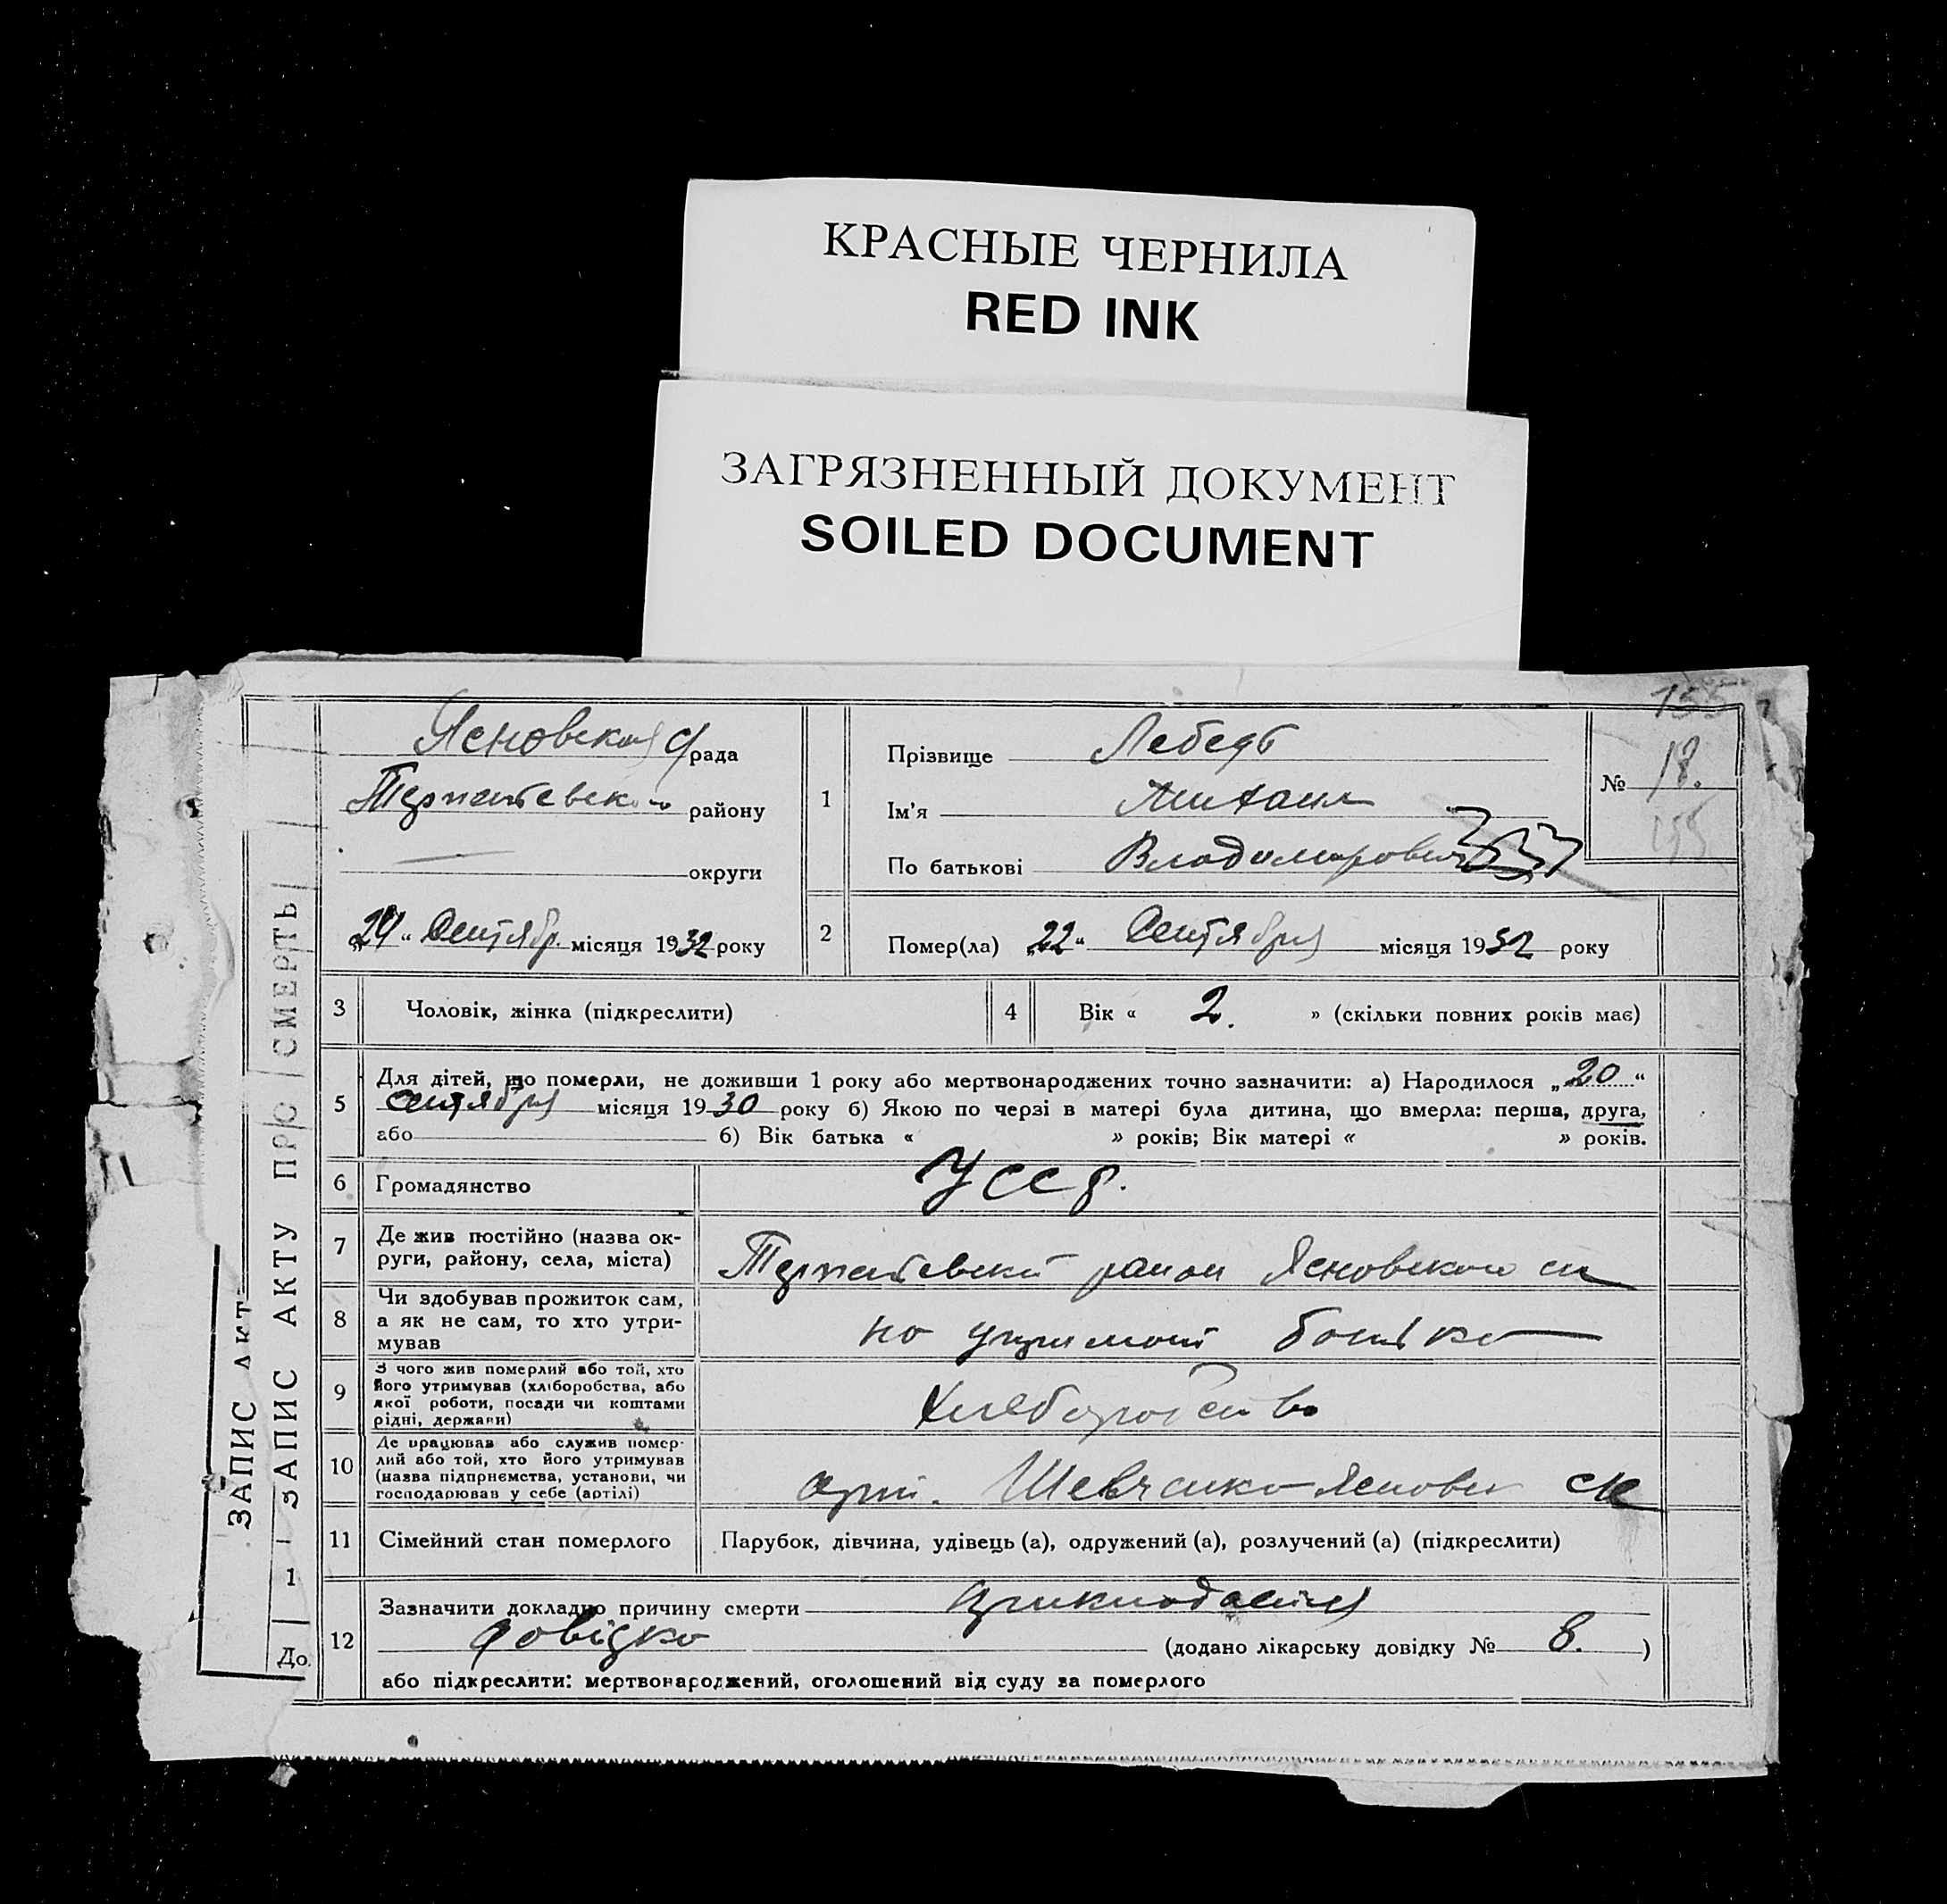 КРАСНЫЕ ЧЕРНИЛА
RED INK
ЗАГРЯЗНЕННЫЙ ДОКУМЕНТ
SOILED DOCUMENT
155
ЗАПИС АКТ
ЗАПИС АКТУ ПРО СМЕРТЬ
1
До
Ясновская рада
району
округи
"24" Сентябр. місяця 1932 року
1
Прізвище Лебедь
Ім'я Михаил
По батькові Владимирович
№ 18.
155
2 Помер(ла) "22" Сентября місяця 1932 року
3 Чоловік, жінка (підкреслити)
4 Вік « 2. » (скільки повних років має)
5 Для дітей, що померли, не доживши 1 року або мертвонароджених точно зазначити: а) Народилося „20“
сентября місяця 1930 року б) Якою по черзі в матері була дитина, що вмерла: перша, друга,
або б) Вік батька « » років; Вік матері « » років.
6 Громадянство УССР.
7 Де жив постійно (назва ок-
руги, району, села, міста)
район
8 Чи здобував прожиток сам,
а як не сам, то хто утри-
мував
на
9 З чого жив померлий або той, хто
його утримував (хліборобства, або
якої роботи, посади чи коштами
рідні, держави)
10 Де працював або служив помер-
лий або той, хто його утримував
(назва підприємства, установи, чи
господарював у себе (артілі)
арт. Шевченко
11 Сімейний стан померлого Парубок, дівчина, удівець (а), одружений (а), розлучений (а) (підкреслити)
12 Зазначити докладно причину смерти
довідка (додано лікарську довідку № 8. )
або підкреслити: мертвонароджений, оголошений від суду за померлого